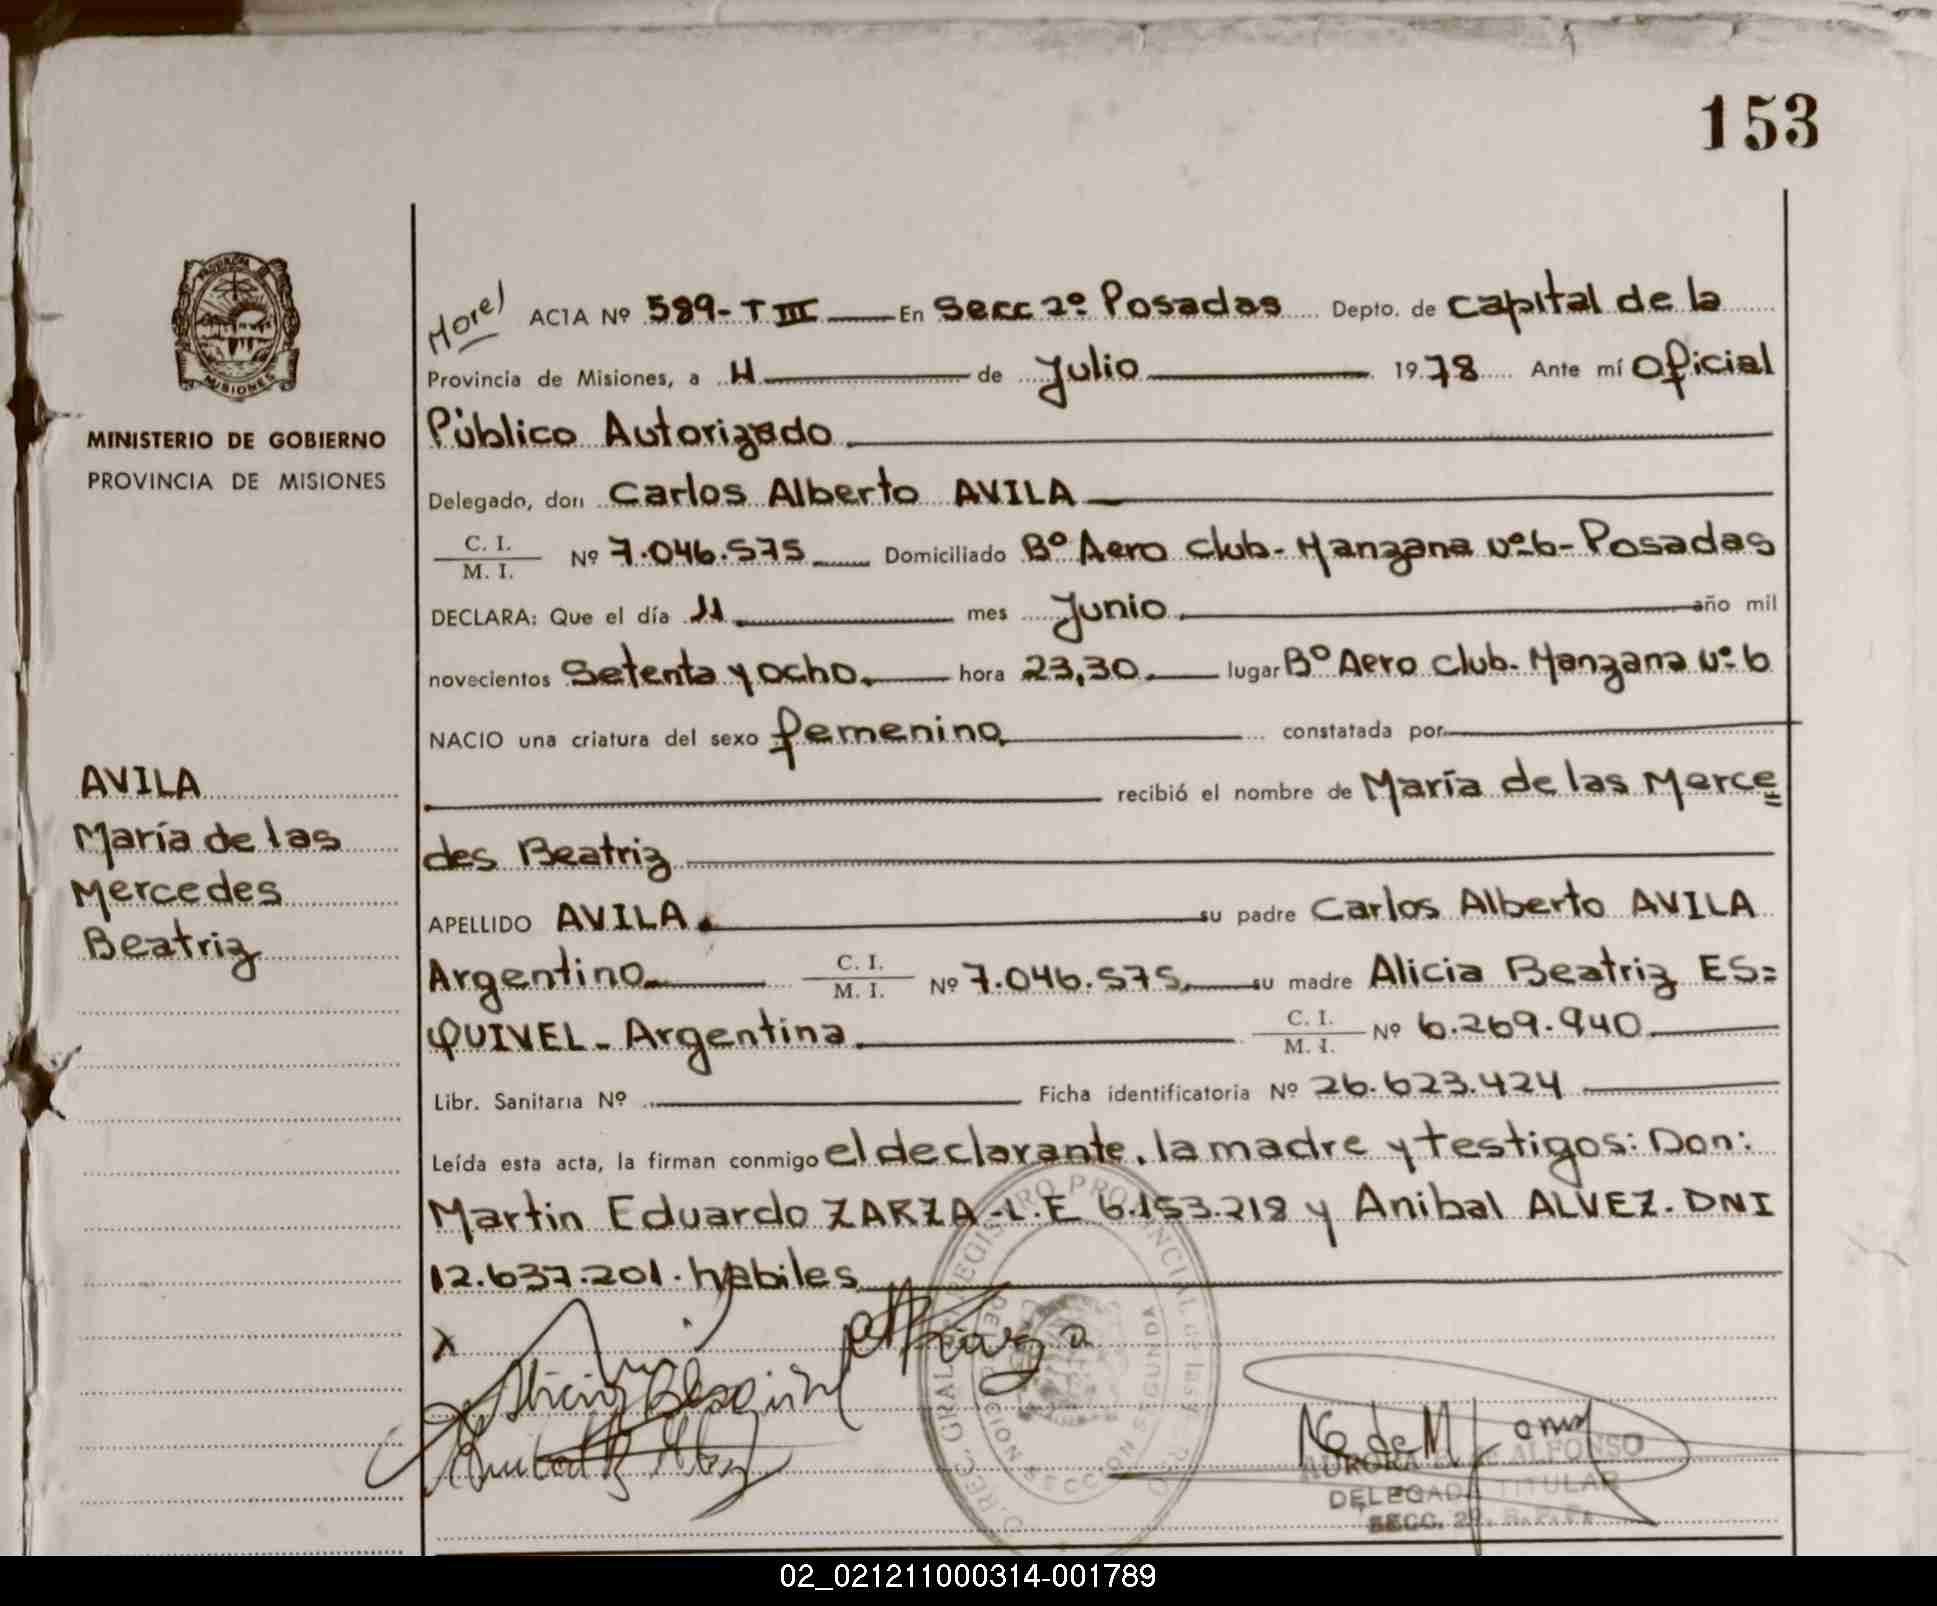 153
PROVINCIA DE
MISIONES
MINISTERIO DE GOBIERNO
PROVINCIA DE MISIONES
AVILA
María de las
Mercedes
Beatriz
Morel ACTA Nº 589-TIII En Secc 2º Posadas Depto. de Capital de la
Provincia de Misiones, a 11 de Julio 1978 Ante mí Oficial
Público Autorizado
Delegado, don Carlos Alberto AVILA
C. I. / M. I. Nº 7.046.575 Domiciliado Bº Aero Club-Manzana nº6-Posadas
DECLARA: Que el día 11 mes Junio año mil
novecientos Setenta y ocho. hora 23,30. lugar Bº Aero Club-Manzana nº 6
NACIO una criatura del sexo femenino constatada por
recibió el nombre de María de las Merce=
des Beatriz
APELLIDO AVILA. su padre Carlos Alberto AVILA
Argentino C. I. / M. I. Nº 7.046.575. su madre Alicia Beatriz ES=
QUIVEL-Argentina C. I. / M. I. Nº 6.269.940
Libr. Sanitaria Nº Ficha identificatoria Nº 26.623.424
Leída esta acta, la firman conmigo el declarante, la madre y testigos: Don:
Martin Eduardo ZARZA-L.E 6.153.218 y Anibal ALVEZ. DNI
12.637.201. habiles
X
REGISTRO PROVINCIAL de las P
SECCION SEGUNDA
AURORA ALFONSO
DELEGADA TITULAR
SECC. 2ª. R.P.P.
02_021211000314-001789